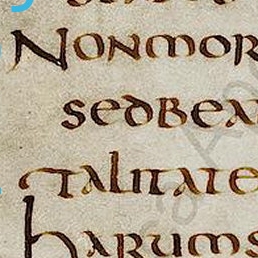 Nonmor
sedbea
talitate
harums